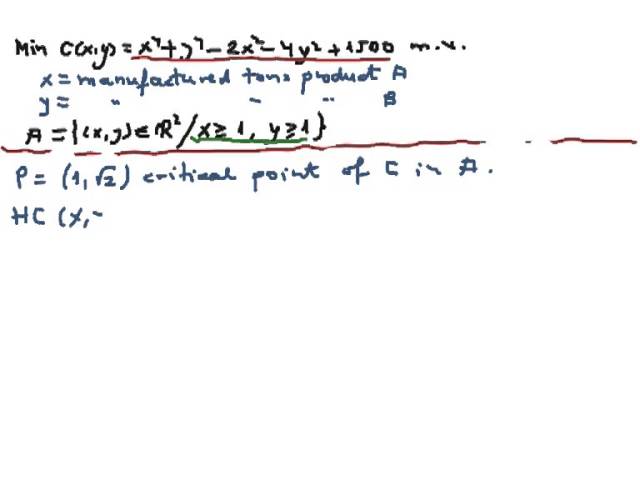 Min C(x,y) = x⁴+y⁴-2x²-4y²+1500 m.u.
x = manufactured tons product A
y = " " " B
A = {(x,y)∈R²/x≥1, y≥1}
P = (1,√2) critical point of C in A.
HC (x,